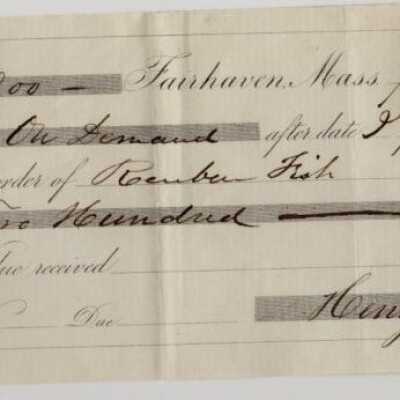 00 — Fairhaven, Mass.
On Demand after date I
order of Reuben Fish
Hundred
ue received
Due
Hen